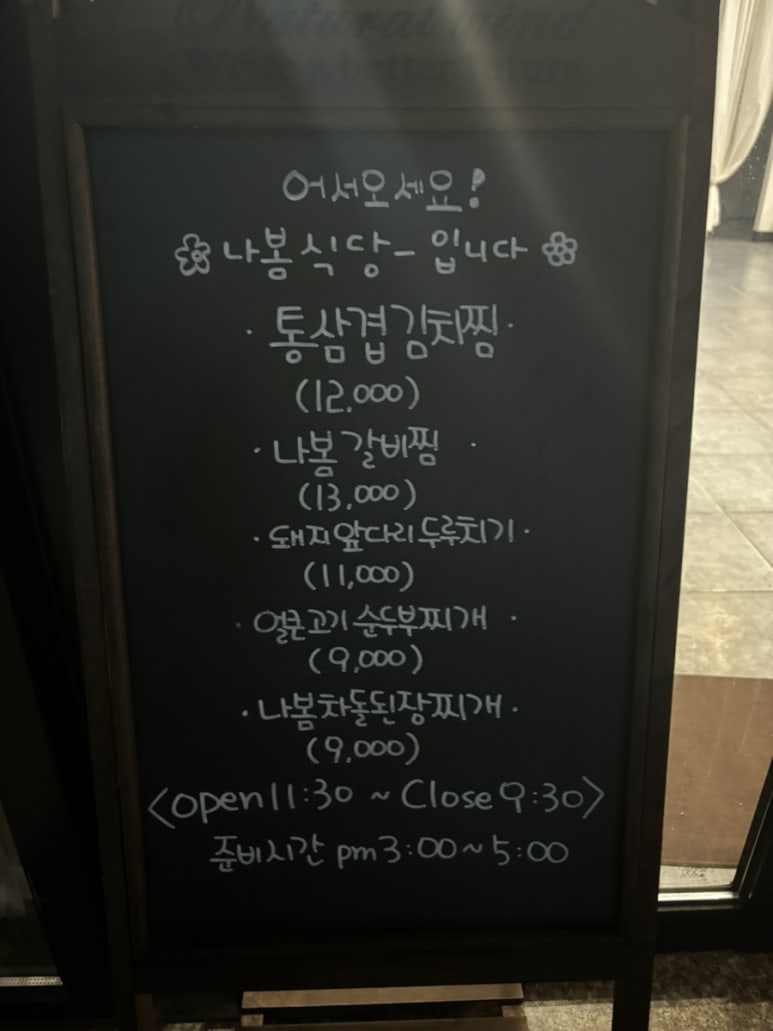 Natural wind
Write a better future
어서오세요!
나봄식당- 입니다
· 통삼겹김치찜·
(12,000)
· 나봄갈비찜 ·
(13,000)
· 돼지앞다리두루치기·
(11,000)
· 얼큰고기순두부찌개 ·
(9,000)
· 나봄차돌된장찌개·
(9,000)
<open 11:30 ~ Close 9:30>
준비시간 pm 3:00~5:00